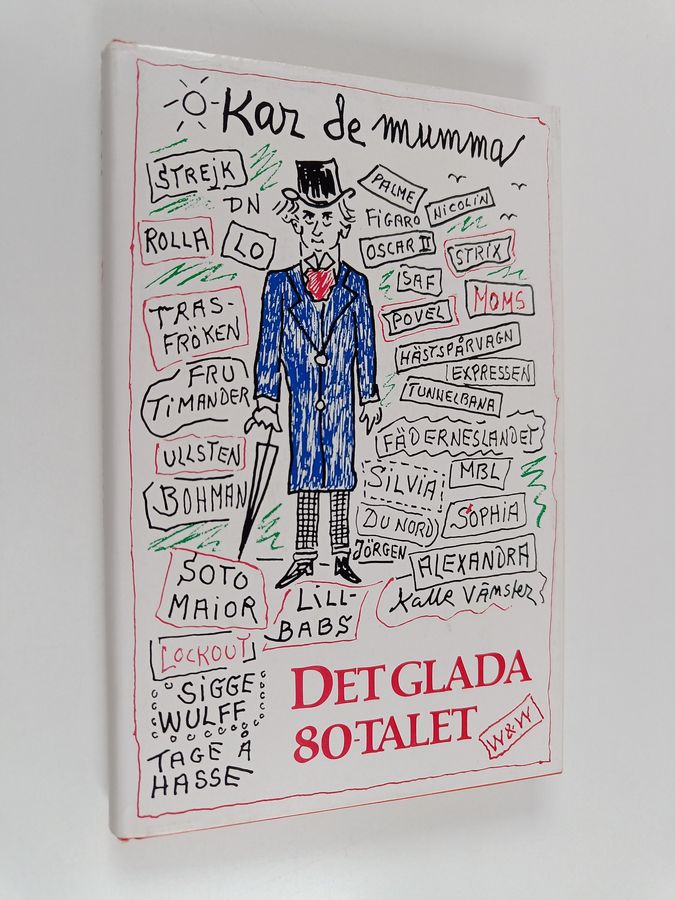 Kar de mumma
STREJK
DN
ROLLA
LO
TRAS-
FRÖKEN
FRU
TIMANDER
ULLSTEN
BOHMAN
SOTO
MAIOR
LOCKOUT
SIGGE
WULFF
TAGE Å
HASSE
PALME
NICOLIN
FIGARO
OSCAR II
STRIX
SAF
MOMS
POVEL
HÄSTSPÅRVAGN
EXPRESSEN
TUNNELBANA
FÄDERNESLANDET
SILVIA
MBL
DU NORD
SOPHIA
JÖRGEN
ALEXANDRA
Kalle Vämster
LILL-
BABS
DET GLADA
80-TALET
W&W